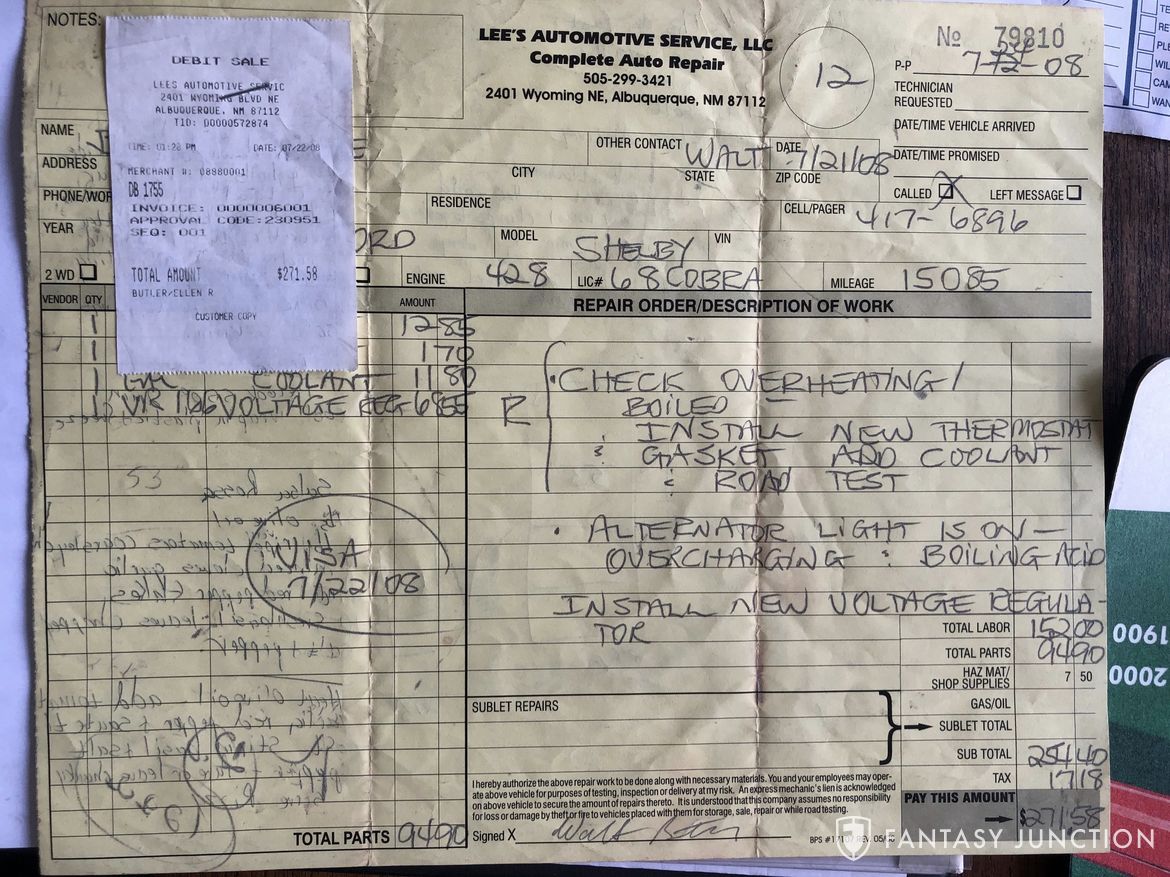 NOTES:
DEBIT SALE
LEES AUTOMOTIVE SERVIC
2401 WYOMING BLVD NE
ALBUQUERQUE, NM 87112
TID: D0000572874
TIME: 01:28 PM DATE: 07/22/08
MERCHANT #: 08880001
DB 1755
INVOICE: 0000006001
APPROVAL CODE:230951
SEQ: 001
TOTAL AMOUNT $271.58
BUTLER/ELLEN R
CUSTOMER COPY
LEE'S AUTOMOTIVE SERVICE, LLC
Complete Auto Repair
505-299-3421
2401 Wyoming NE, Albuquerque, NM 87112
12
No 79810
P-P 7- -08
TECHNICIAN
REQUESTED
DATE/TIME VEHICLE ARRIVED
DATE/TIME PROMISED
CALLED LEFT MESSAGE
NAME
OTHER CONTACT WALT DATE 7/21/08
ADDRESS CITY STATE ZIP CODE
PHONE/WOR RESIDENCE CELL/PAGER 417-6896
YEAR ORD MODEL SHELBY VIN
2 WD ENGINE 428 LIC# 68COBRA MILEAGE 15085
VENDOR QTY AMOUNT REPAIR ORDER/DESCRIPTION OF WORK
1 12 85
1 1 70
1 GAL COOLANT 11 80
1 VR 1126 VOLTAGE REG 68 55
R
• CHECK OVERHEATING/
BOILED
INSTALL NEW THERMOSTAT
& GASKET ADD COOLANT
& ROAD TEST
• ALTERNATOR LIGHT IS ON—
OVERCHARGING & BOILING ACID
INSTALL NEW VOLTAGE REGULA-
TOR
VISA
7/22/08
TOTAL LABOR 152 00
TOTAL PARTS 94 90
HAZ MAT/
SHOP SUPPLIES 7 50
GAS/OIL
SUBLET REPAIRS
SUBLET TOTAL
SUB TOTAL 254 40
TAX 17 18
PAY THIS AMOUNT $271 58
I hereby authorize the above repair work to be done along with necessary materials. You and your employees may oper-
ate above vehicle for purposes of testing, inspection or delivery at my risk. An express mechanic's lien is acknowledged
on above vehicle to secure the amount of repairs thereto. It is understood that this company assumes no responsibility
for loss or damage by theft or fire to vehicles placed with them for storage, sale, repair or while road testing.
TOTAL PARTS 94 90
Signed X Walt
FANTASY JUNCTION
1900
2000